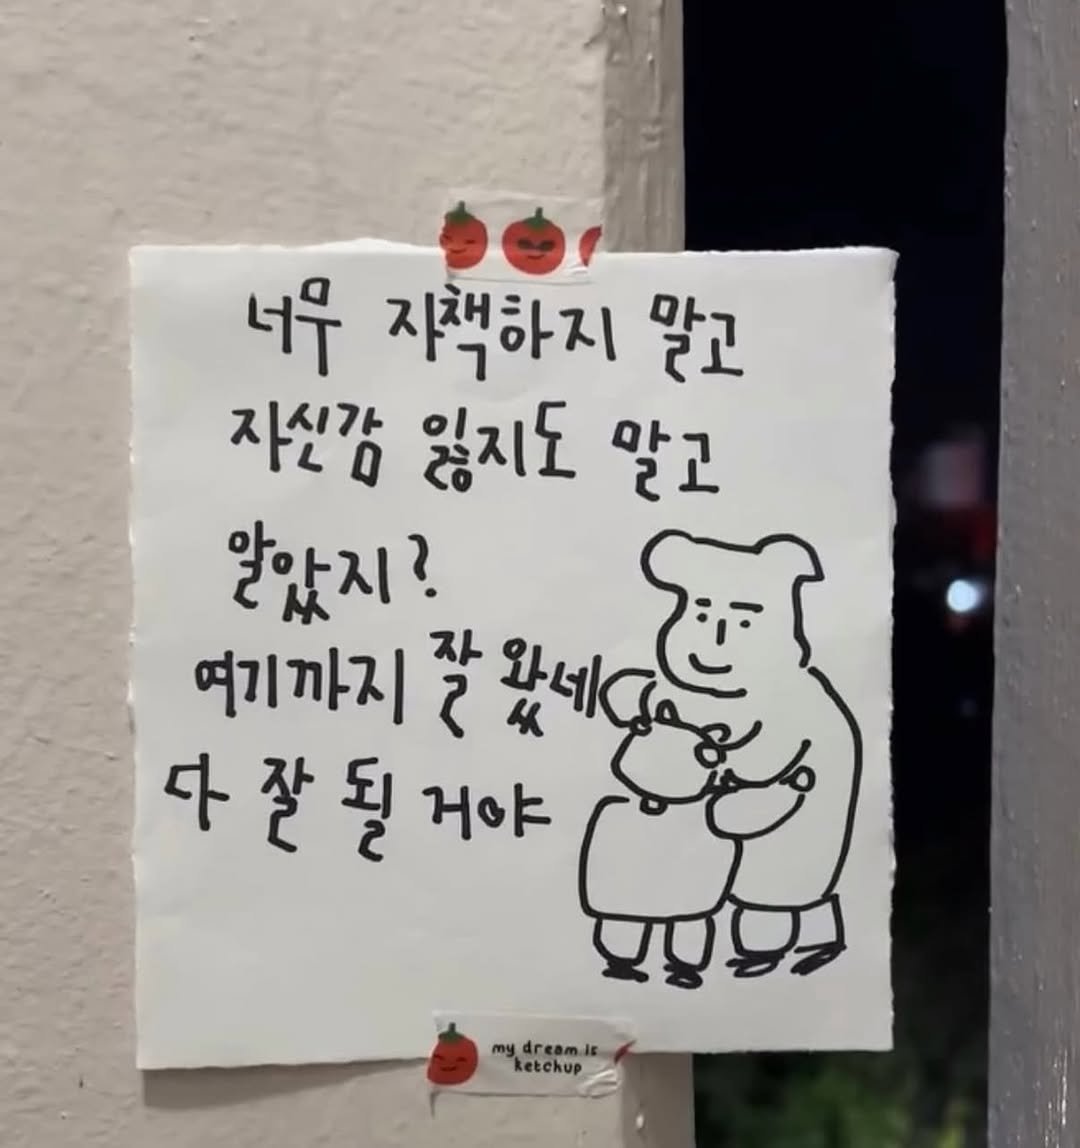 너무 자책하지 말고
자신감 잃지도 말고
알았지?
여기까지 잘 왔네
다 잘 될 거야
my dream is
ketchup